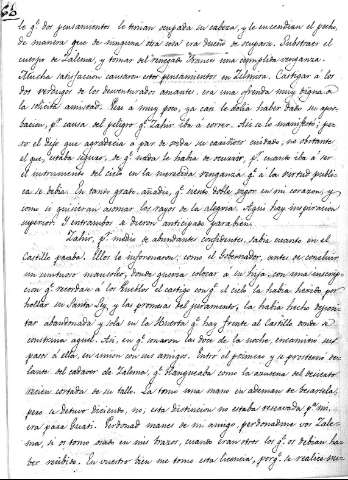 le q.e dos pensamientos le tenian ocupada su cabeza, y le encendian el pecho,
de manera que de ninguna otra cosa era dueño de ocuparse. Substraer el
cuerpo de Zalema, y tomar del renegade Franco una cumplida venganza.
Mucha satisfaccion causaron estos pensamientos en Zelmora. Castigar á los
dos verdugos de los desventurados amantes, era una ofrenda muy digna á
la solicita amistad. Pero á muy poco, ya casi le dolia haber dado su apro-
bacion, p.r causa del peligro q.e Zahir iba á correr. Asi se lo manifestó; pe-
ro él dijo que agradecia á par de vida su cariñoso cuidado, no obstante
el que, estaba seguro, de q.e nada le habia de ocurrir, p.r cuanto iba á ser
el instrumento del cielo en la merecida venganza q.e á la virtud publi-
ca se debia. En tanto grado, añadio, q.e siento doble vigor en mi corazon, y
como si quisieran asomar los rayos de la alegria. Aqui hay inspiracion
superior. Y entrambos se dieron anticipado parabien.
Zahir, p.r medio de abundantes confidentes, sabia cuanto en el
Castillo pasaba. Ellos le informaron, como el Gobernador, antes de concluir
un suntuoso mausoleo, donde queria colocar á su hija, con una inscrip-
cion q.e recordara á los Pueblos el castigo con q.e el cielo la habia herido por
hollar su Santa Ley, y las promesas del juramento, la habia hecho deposi-
tar abandonada y sola en la Huerta q.e hay frente al Castillo donde se
construia aquel. Asi, en q.e sonaron las doce de la noche, encaminó sus
pasos á ella, en union con sus amigos. Entró el primero y se prosternó de-
lante del cadaver de Zalema, q.e blanqueaba como la azucena del desierto
recien cortada de su tallo. La tomó una mano en ademan de besarsela;
pero se detuvo diciendo, no, esta distincion no estaba reservada p.a mi,
era para Ducati. Perdonad manes de mi amigo, perdonadme vos Zale-
ma, si os tomo osado en mis brazos, cuando eran otros los q.e os debian ha-
ber recibido. En vuestro bien me tomo esta licencia, porq.e se realice nues-